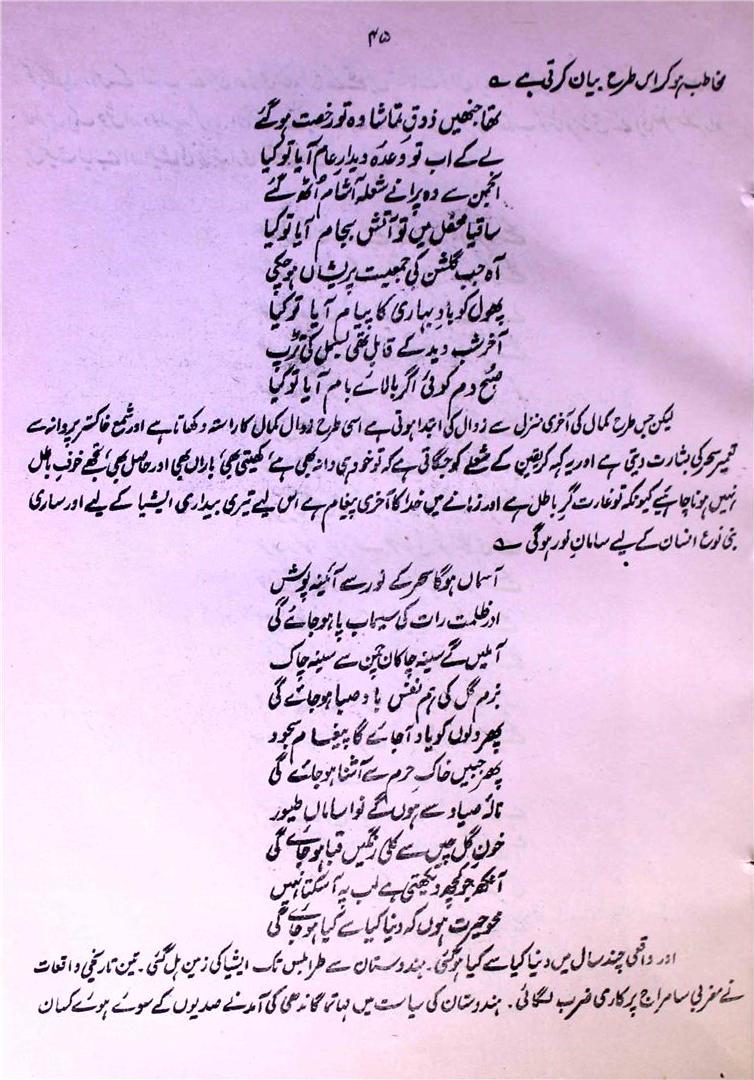 ۴۵
مخاطب ہو کر اس طرح بیان کرتی ہے ؎
تھا جنھیں ذوقِ تماشا وہ تو رخصت ہو گئے
لے کے اب تو وعدہ دیدارِ عام آیا تو کیا
انجمن سے وہ پرانے شعلہ آشام اُٹھ گئے
ساقیا محفل میں تو آتش بجام آیا تو کیا
آہ جب گلشن کی جمعیت پریشاں ہو چکی
پھول کو بادِ بہاری کا پیام آیا تو کیا
آخرِ شب دید کے قابل تھی بسمل کی تڑپ
صبح دم کوئی اگر بالائے بام آیا تو کیا
لیکن جس طرح کمال کی آخری منزل سے زوال کی ابتدا ہوتی ہے اسی طرح زوال کمال کا راستہ دکھاتا ہے اور شمع خاکسترِ پروانہ سے
تعمیرِ سحر کی بشارت دیتی ہے اور یہ کہہ کر یقین کے شعلے کو جگاتی ہے کہ تو خود ہی دانہ بھی ہے، کھیتی بھی، باراں بھی اور حاصل بھی، تجھے خوفِ باطل
نہیں ہونا چاہئے کیونکہ تو غارت گرِ باطل ہے اور زمانے میں خدا کا آخری پیغام ہے اس لیے تیری بیداری ایشیا کے لیے اور ساری
بنی نوع انسان کے لیے سامانِ نور ہوگی ؎
آسماں ہوگا سحر کے نور سے آئینہ پوش
اور ظلمت رات کی سیماب پا ہو جائے گی
آ ملیں گے سینہ چاکانِ چمن سے سینہ چاک
بزمِ گل کی ہم نفس بادِ صبا ہو جائے گی
پھر دلوں کو یاد آ جائے گا پیغامِ سجود
پھر جبیں خاکِ حرم سے آشنا ہو جائے گی
نالۂ صیاد سے ہوں گے نوا ساماں طیور
خونِ گل چیں سے کلی رنگیں قبا ہو جائے گی
آنکھ جو کچھ دیکھتی ہے لب پہ آ سکتا نہیں
محوِ حیرت ہوں کہ دنیا کیا سے کیا ہو جائے گی
اور واقعی چند سال میں دنیا کیا سے کیا ہو گئی۔ ہندوستان سے طرابلس تک ایشیا کی زمین ہل گئی۔ تین تاریخی واقعات
نے مغربی سامراج پر کاری ضرب لگائی۔ ہندوستان کی سیاست میں مہاتما گاندھی کی آمد نے صدیوں کے سوئے ہوئے کسان